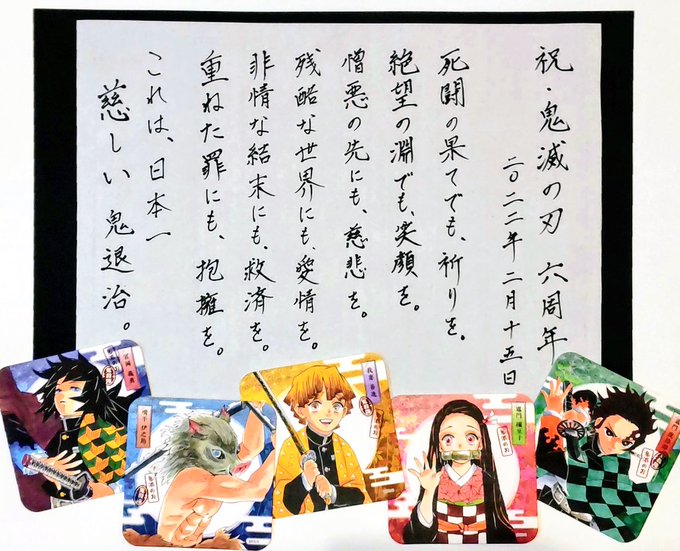 祝・鬼滅の刃 六周年
二〇二二年二月十五日
死闘の果てでも、祈りを。
絶望の淵でも、笑顔を。
憎悪の先にも、慈悲を。
残酷な世界にも、愛情を。
非情な結末にも、救済を。
重ねた罪にも、抱擁を。
これは、日本一
慈しい鬼退治。
冨岡 義勇
嘴平 伊之助
我妻 善逸
竈門 禰豆子